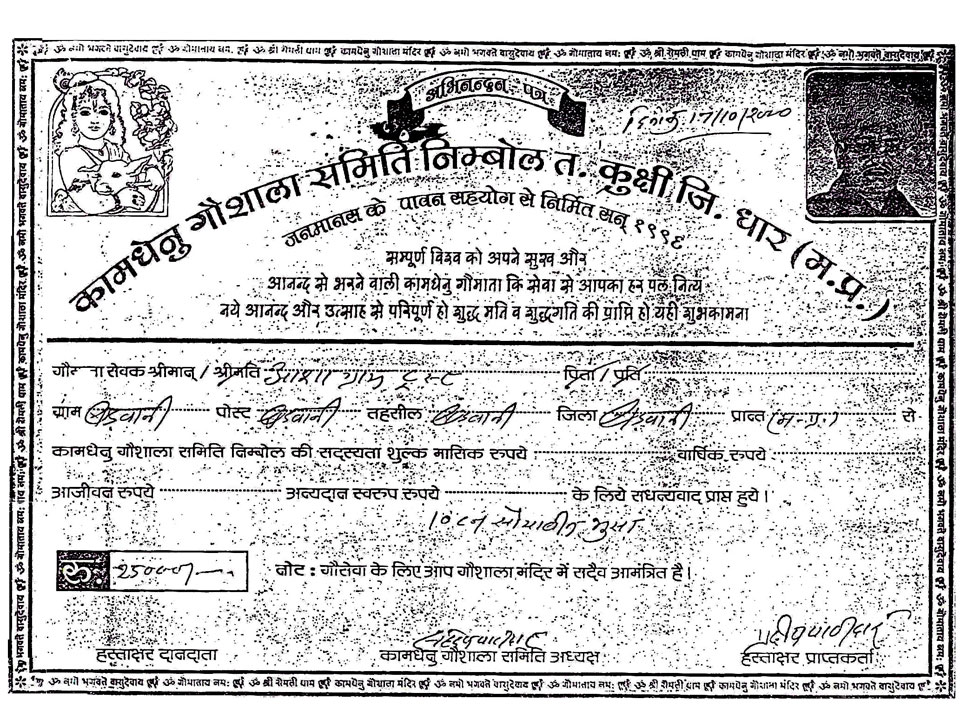 ॐ नमो भगवते वासुदेवाय ॐ गौमाताय नमः ॐ श्री सेमली धाम कामधेनु गौशाला मंदिर ॐ नमो भगवते वासुदेवाय ॐ गौमाताय नमः ॐ श्री सेमली धाम कामधेनु गौशाला मंदिर ॐ नमो भगवते वासुदेवाय
अभिनन्दन पत्र
दिनांक 17/10/2020
कामधेनु गौशाला समिति निम्बोल त. कुक्षी जि. धार (म.प्र.)
जनमानस के पावन सहयोग से निर्मित सन् १९९६
सम्पूर्ण विश्व को अपने सुख और
आनन्द से भरने वाली कामधेनु गौमाता कि सेवा से आपका हर पल नित्य
नये आनन्द और उत्साह से परिपूर्ण हो शुद्ध मति व शुद्धगति की प्राप्ति हो यही शुभकामना
सेवक श्रीमान् / श्रीमति आशा ग्राम ट्रस्ट पिता / पति
ग्राम बड़वानी पोस्ट बड़वानी तहसील बड़वानी जिला बड़वानी प्रान्त (म.प्र.) से
कामधेनु गौशाला समिति निम्बोल की सदस्यता शुल्क मासिक रुपये वार्षिक रुपये
आजीवन रुपये अन्यदान स्वरुप रुपये के लिये सधन्यवाद प्राप्त हुये।
10 टन सोयाबीन भुसा
रु. 25000/-
नोट : गौसेवा के लिए आप गौशाला मंदिर में सदैव आमंत्रित है।
हस्ताक्षर दानदाता कामधेनु गौशाला समिति अध्यक्ष हस्ताक्षर प्राप्तकर्ता